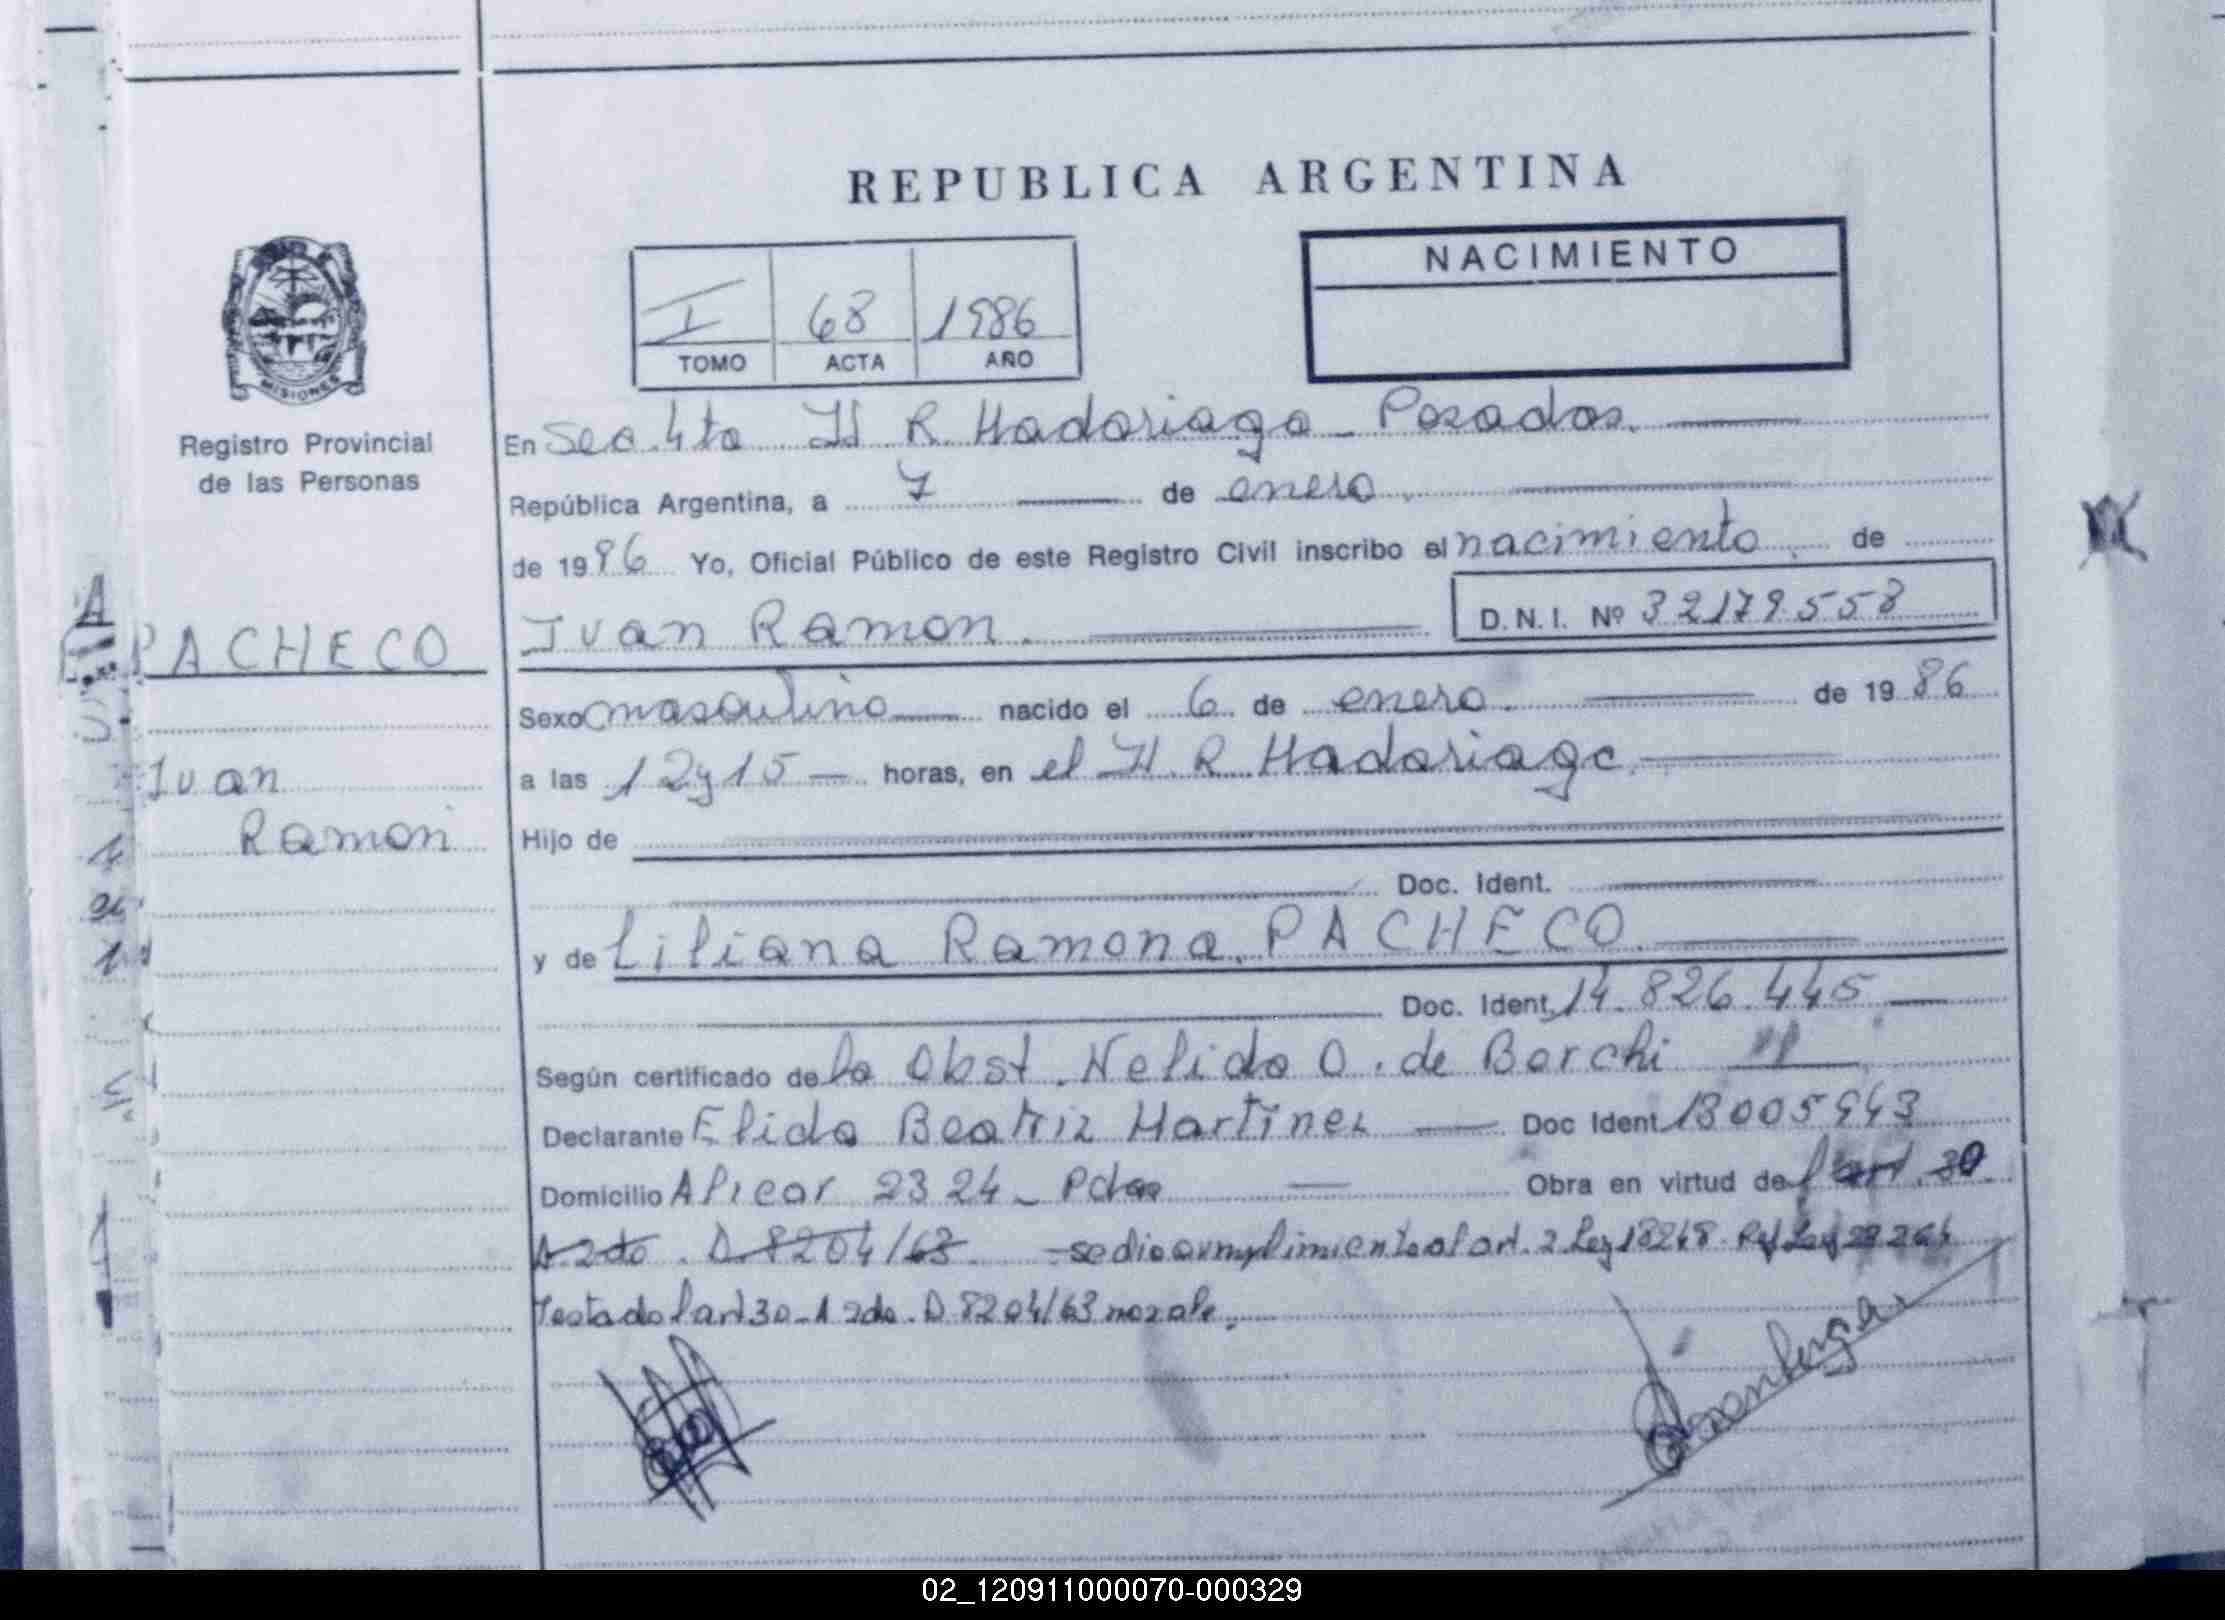 REPUBLICA ARGENTINA
NACIMIENTO
I 68 1986
TOMO ACTA AÑO
MISIONES
Registro Provincial
de las Personas
PACHECO
Ivan
Ramon
En Sec. 4ta H R Madariaga - Posadas.
República Argentina, a 7 de enero
de 1986 Yo, Oficial Público de este Registro Civil inscribo el nacimiento de
Ivan Ramon. D.N.I. Nº 32179.558
Sexo masculino nacido el 6 de enero de 1986
a las 12 y 15 horas, en el H. R. Madariaga
Hijo de
Doc. Ident.
y de Liliana Ramona PACHECO
Doc. Ident. 14.826.445
Según certificado de la Obst. Nelida O. de Borchi
Declarante Elida Beatriz Martinez Doc Ident 13005943
Domicilio Alvear 2324 - Pdas Obra en virtud del art. 30
A 2do. D. 8204/63 - se dio cumplimiento al art. 2 Ley 18248 Ref Ley 23264
Testado l art 30 - A 2do. D. 8204/63 no vale.
02_120911000070-000329